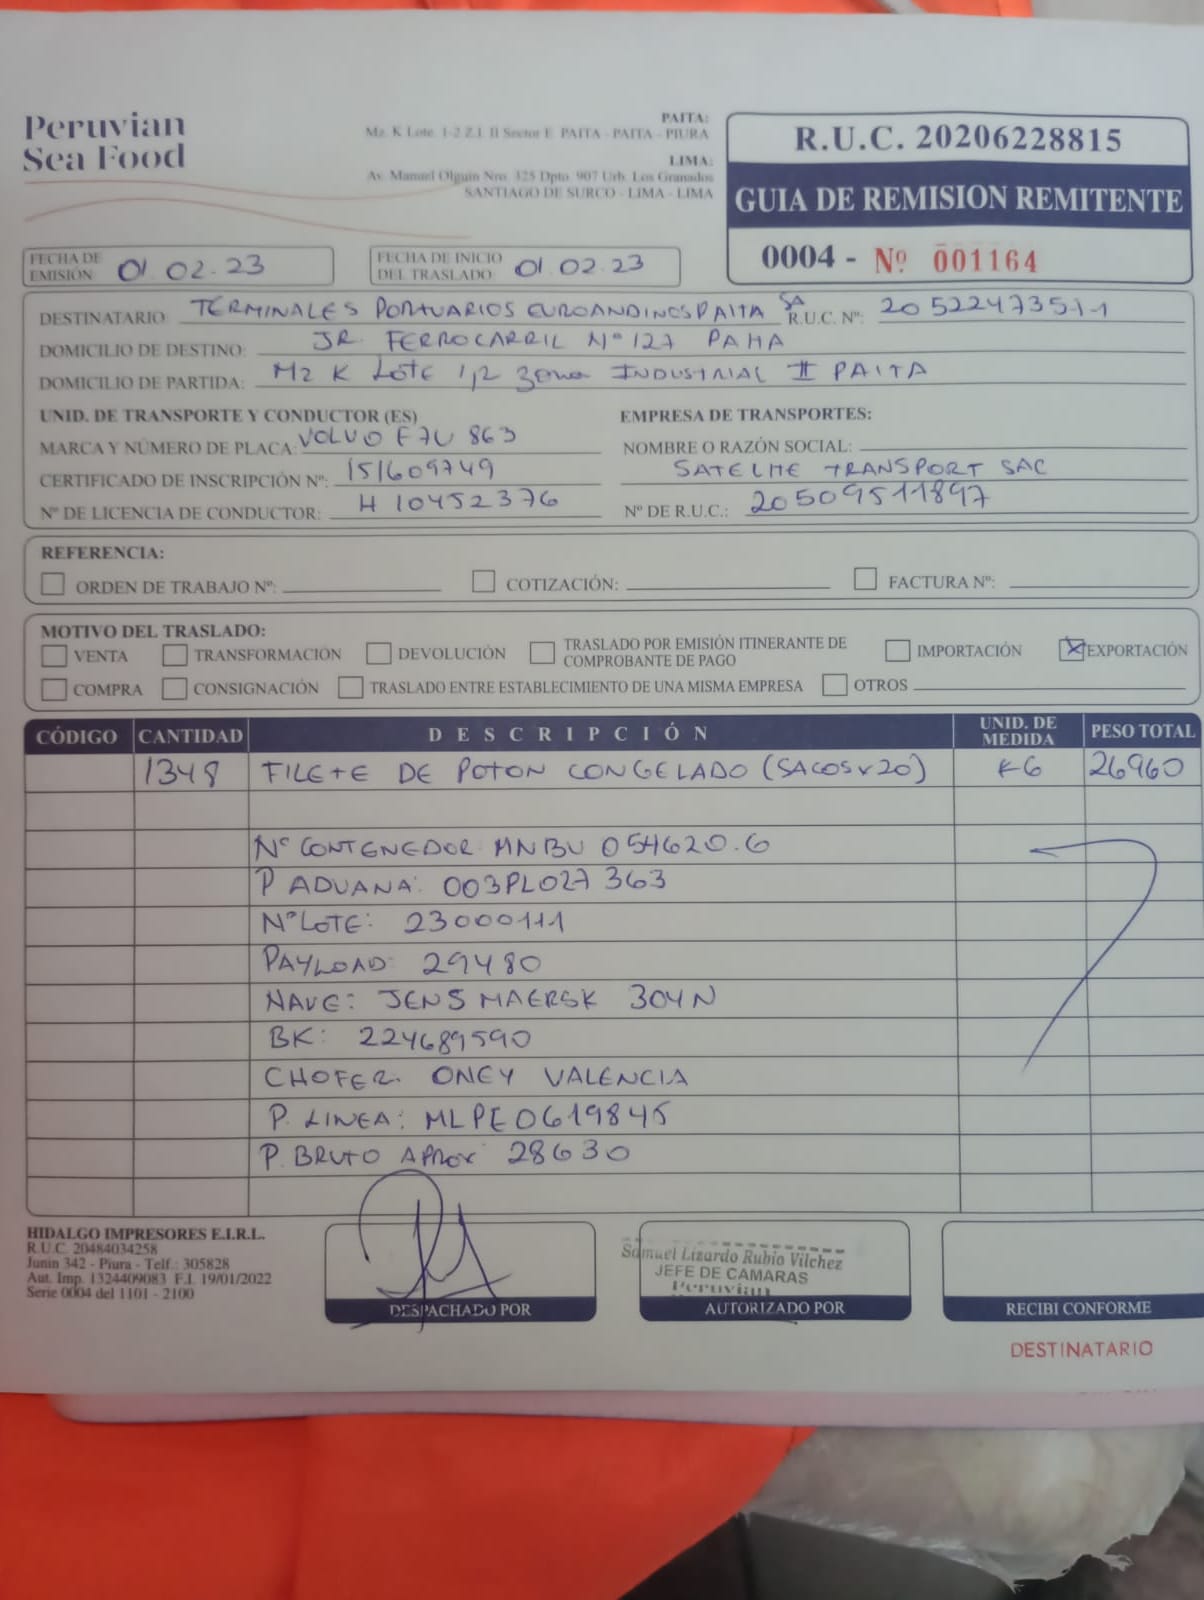 Peruvian
Sea Food
PAITA:
Mz. K Lote. 1-2 Z.I. II Sector E. PAITA - PAITA - PIURA
LIMA:
Av. Manuel Olguin Nro. 325 Dpto. 907 Urb. Los Granados
SANTIAGO DE SURCO - LIMA - LIMA
R.U.C. 20206228815
GUIA DE REMISION REMITENTE
0004 - Nº 001164
FECHA DE EMISIÓN: 01.02.23
FECHA DE INICIO DEL TRASLADO: 01.02.23
DESTINATARIO: TERMINALES PORTUARIOS EUROANDINOS PAITA SA R.U.C. Nº: 20522473511
DOMICILIO DE DESTINO: JR. FERROCARRIL Nº 127 PAITA
DOMICILIO DE PARTIDA: MZ K LOTE 1,2 zona INDUSTRIAL II PAITA
UNID. DE TRANSPORTE Y CONDUCTOR (ES)
MARCA Y NÚMERO DE PLACA: VOLVO F7U 863
CERTIFICADO DE INSCRIPCIÓN Nº: 151609749
Nº DE LICENCIA DE CONDUCTOR: H 10452376
EMPRESA DE TRANSPORTES:
NOMBRE O RAZÓN SOCIAL:
SATELITE TRANSPORT SAC
Nº DE R.U.C.: 20509511897
REFERENCIA:
ORDEN DE TRABAJO Nº: COTIZACIÓN: FACTURA Nº:
MOTIVO DEL TRASLADO:
VENTA TRANSFORMACIÓN DEVOLUCIÓN TRASLADO POR EMISIÓN ITINERANTE DE COMPROBANTE DE PAGO IMPORTACIÓN X EXPORTACIÓN
COMPRA CONSIGNACIÓN TRASLADO ENTRE ESTABLECIMIENTO DE UNA MISMA EMPRESA OTROS
CÓDIGO CANTIDAD DESCRIPCIÓN UNID. DE MEDIDA PESO TOTAL
1348 FILETE DE POTON CONGELADO (SACOS x 20) KG 26960
Nº CONTENEDOR: MNBU 054620.6
P ADUANA: 003PL027363
Nº LOTE: 23000111
PAYLOAD: 29480
NAVE: JENS MAERSK 304N
BK: 224689590
CHOFER: ONEY VALENCIA
P. LINEA: MLPE0619845
P. BRUTO APROX: 28630
HIDALGO IMPRESORES E.I.R.L.
R.U.C. 20484034258
Junin 342 - Piura - Telf.: 305828
Aut. Imp. 1324409083 F.I. 19/01/2022
Serie 0004 del 1101 - 2100
DESPACHADO POR
Samuel Lizardo Rubio Vilchez
JEFE DE CAMARAS
Peruvian
AUTORIZADO POR
RECIBI CONFORME
DESTINATARIO